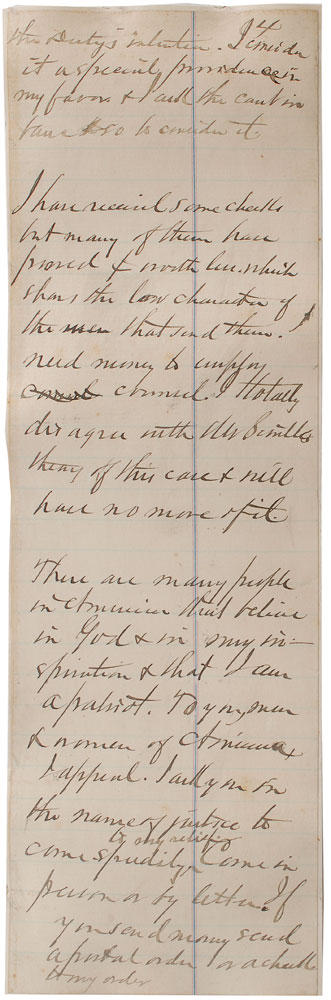 the Deity's intention. I consider
it a special providence in
my favor & I ask the court in
banc to so consider it.
I have received some checks
but many of them have
proved worthless. which
shows the low character of
the men that send them. I
need money to employ
counsel. I totally
disagree with Mr Scoville's
theory of this case & will
have no more of it.
There are many people
in America that believe
in God & in my in-
spiration & that I am
a patriot. To you, men
& women of America
I appeal. I ask you in
the name of justice to
to my relief
come speedily. Come in
person or by letter. If
you send money send
a postal order or a check
to my order